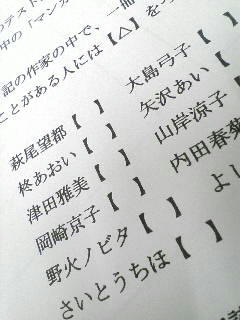 のテスト
中の「マンガ
記の作家の中で、一冊
ことがある人には【△】を
萩尾望都【　】　大島弓子【　】
柊あおい【　】　矢沢あい【　】
津田雅美【　】　山岸涼子【　】
岡崎京子【　】　内田春菊
野火ノビタ【　】　よし
さいとうちほ【　】